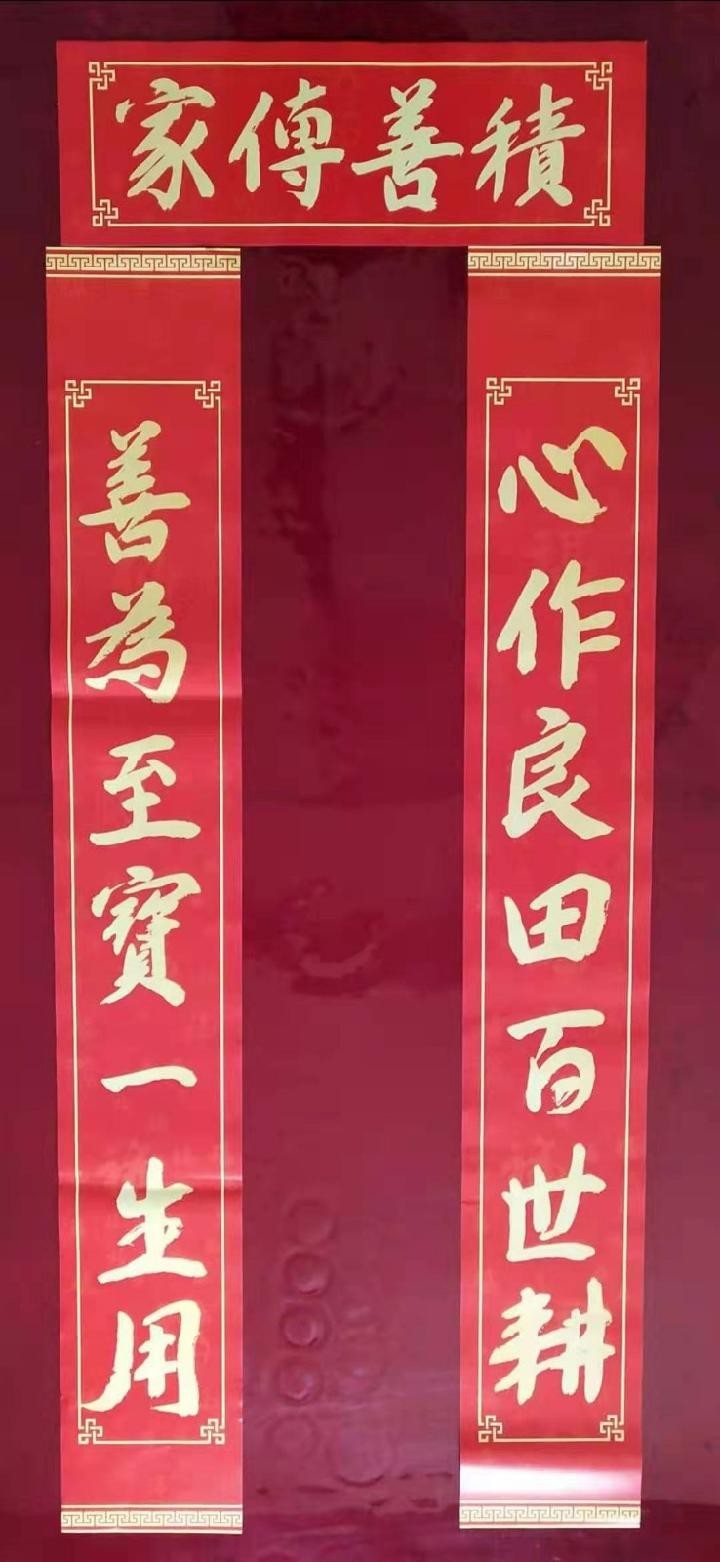 積善傳家
心作良田百世耕
善為至寶一生用